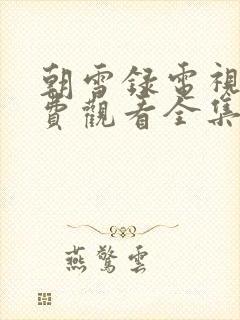 朝雪録電視
費觀看全集
燕驚雲